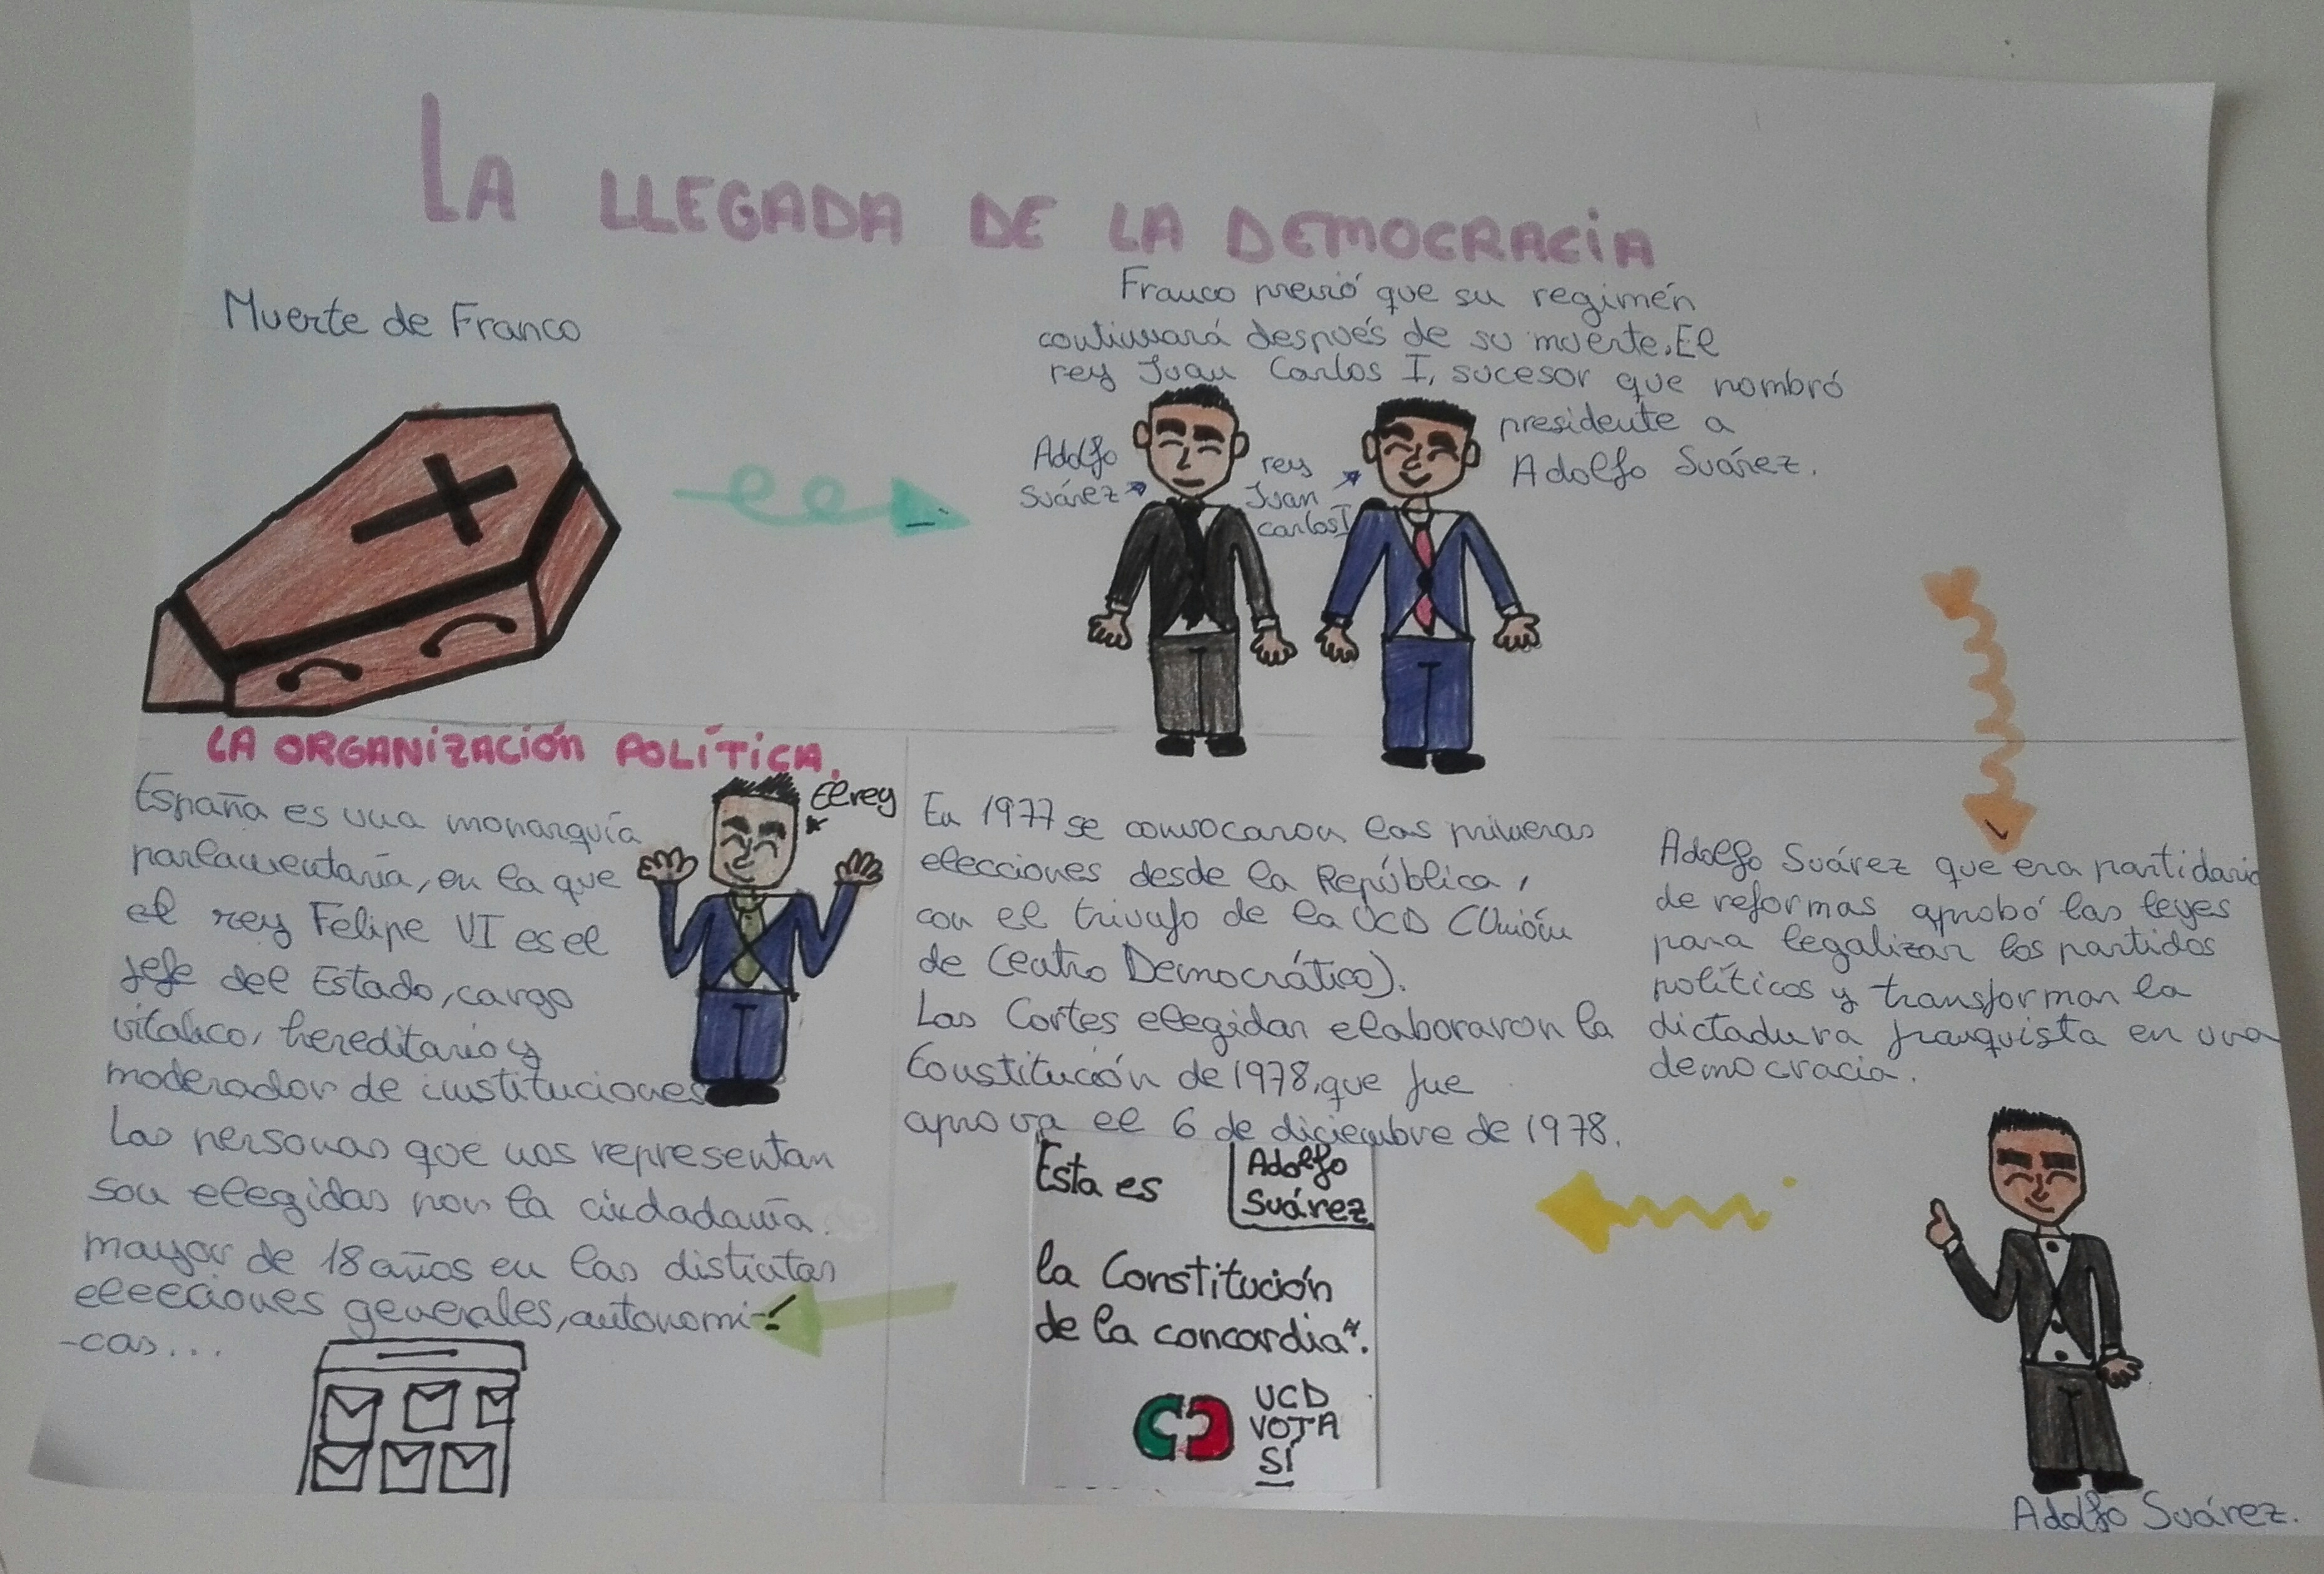 LA LLEGADA DE LA DEMOCRACIA
Muerte de Franco
Franco previó que su regimén
continuará después de su muerte. El
rey Juan Carlos I, sucesor que nombró
presidente a
Adolfo Suárez.
Adolfo
Suárez
rey
Juan
Carlos I
Adolfo Suárez que era partidario
de reformas aprobó las leyes
para legalizar los partidos
políticos y transforman la
dictadura franquista en una
democracia.
Adolfo Suárez.
En 1977 se convocaron las primeras
elecciones desde la República,
con el triunfo de la UCD (Unión
de Centro Democrático).
Las Cortes elegidas elaboraron la
Constitución de 1978, que fue
aprova el 6 de diciembre de 1978.
Esta es
Adolfo
Suárez
la Constitución
de la concordia".
UCD
VOTA
SÍ
LA ORGANIZACIÓN POLÍTICA.
El rey
España es una monarquía
parlamentaria, en la que
el rey Felipe VI es el
jefe del Estado, cargo
vitalico, hereditario y
moderador de instituciones
Las personas que nos representan
son elegidas por la ciudadanía
mayor de 18 años en las distintas
elecciones generales, autonomi-
-cas...